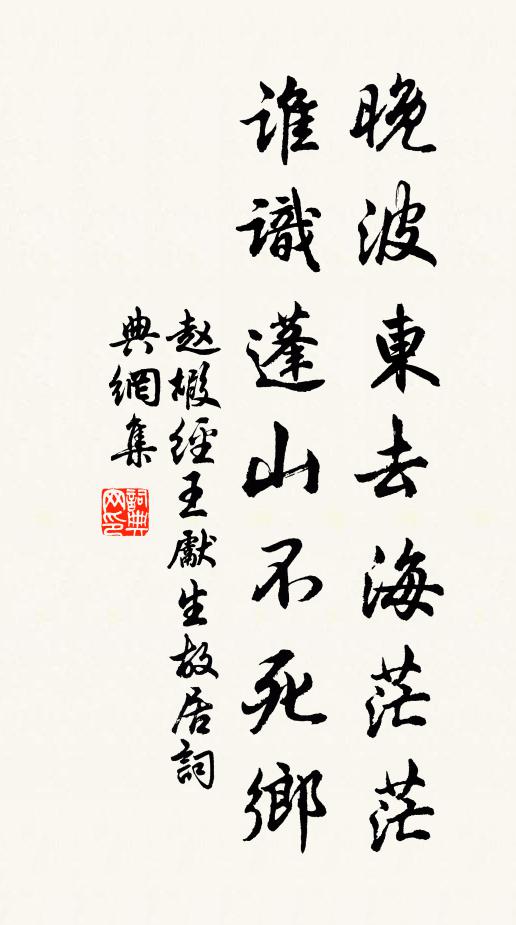 晚波東去海茫茫
誰識蓬山不死鄉
赵嘏經王獻生故居詞
典網集
詞典网印